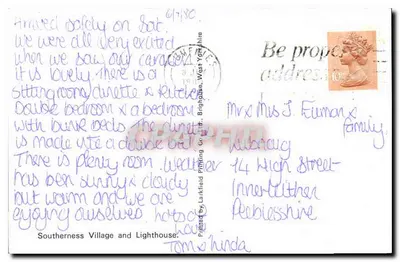 6/7/80
Arrived safely on Sat.
We were all very excited
when we saw our caravan
it is lovely. There is a
sitting room/dinette & kitchen
Double bedroom & a bedroom
with bunk beds. The dinette
is made into a double bed.
There is plenty room. Weather
has been sunny & cloudy
but warm and we are
enjoying ourselves
Tom & Linda
Southerness Village and Lighthouse.
Printed by Larkfield Printing Co. Ltd., Brighouse, West Yorkshire
Be proper
address
Mr & Mrs J
Family
14 High Street
Innerleithen
Peeblesshire